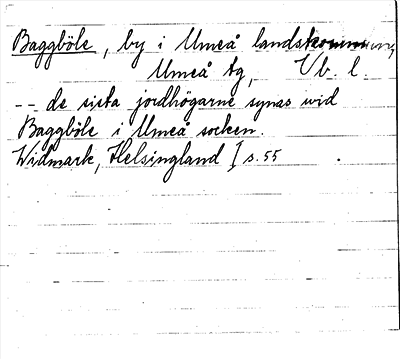 Baggböle, by i Umeå landskommun,
Umeå tg, Vb. l.
-- de sista jordhögarne synas wid
Baggböle i Umeå socken.
Widmark, Helsingland I s. 55